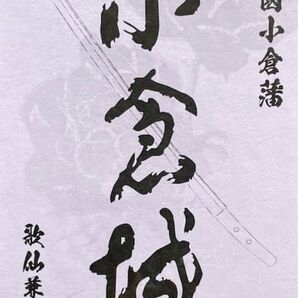 國小倉藩
小倉城
歌仙兼